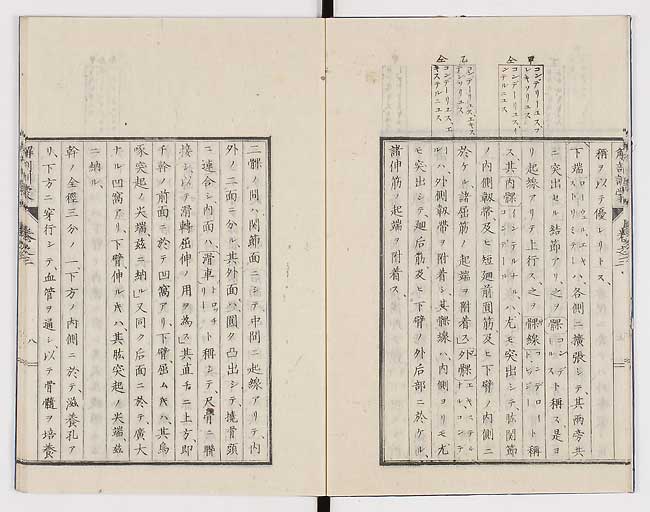 解剖訓蒙
卷之三
甲 コンデーリュス、フレキソリュス
仝 コンデーリュス、インテルニュス
乙 コンデーリュス、エキステンソリュス
仝 コンデーリュス、エキステルニュス
稱ヲ以テ優レリトス、
下端 ハ、各側ニ擴張シテ、其両旁共
ニ突出セル結節アリ、之ヲ髁 コンデ ト稱ス、是ヨ
リ起線アリテ上行ス、之ヲ髁線 ト稱
ス、其内髁 ハ、尤モ突出シテ、肱関節
ノ内側靱帶及ヒ短廻前圓筋及ヒ下臂ノ内側ニ
於ケル諸屈筋ノ起端ヲ附着ス、外髁
ハ外側靱帶ヲ附着シ、其髁線ハ、内側ヨリモ尤
モ突出シテ、廻后筋及ヒ下臂ノ外后部ニ於ケル、
諸伸筋ノ起端ヲ附着ス、
二髁ノ間ハ関節面ニシテ中間ニ起線アリテ、内
外ノ二面ニ分ル、其外面ハ、圓ク凸出シテ、撓骨頭
ニ連合シ、内面ハ、滑車 ト稱シテ、尺骨ニ聯
接シ、以テ滑轉屈伸ノ用ヲ為ス、其直チニ上方、即
チ幹ノ前面ニ於テ凹窩アリ、下臂、屈ムキハ、其烏
啄突起ノ尖端、玆ニ納ル、又同ク后面ニ於テ、廣大
ナル凹窩アリ、下臂、伸ルキハ其肱突起ノ尖端、玆
ニ納ル、
幹ノ全徑三分ノ一、下方ノ内側ニ於テ、滋養孔ア
リ、下方ニ穿行シテ血管ヲ通シ、以テ骨髓ヲ培養
解剖訓蒙
卷之三
八